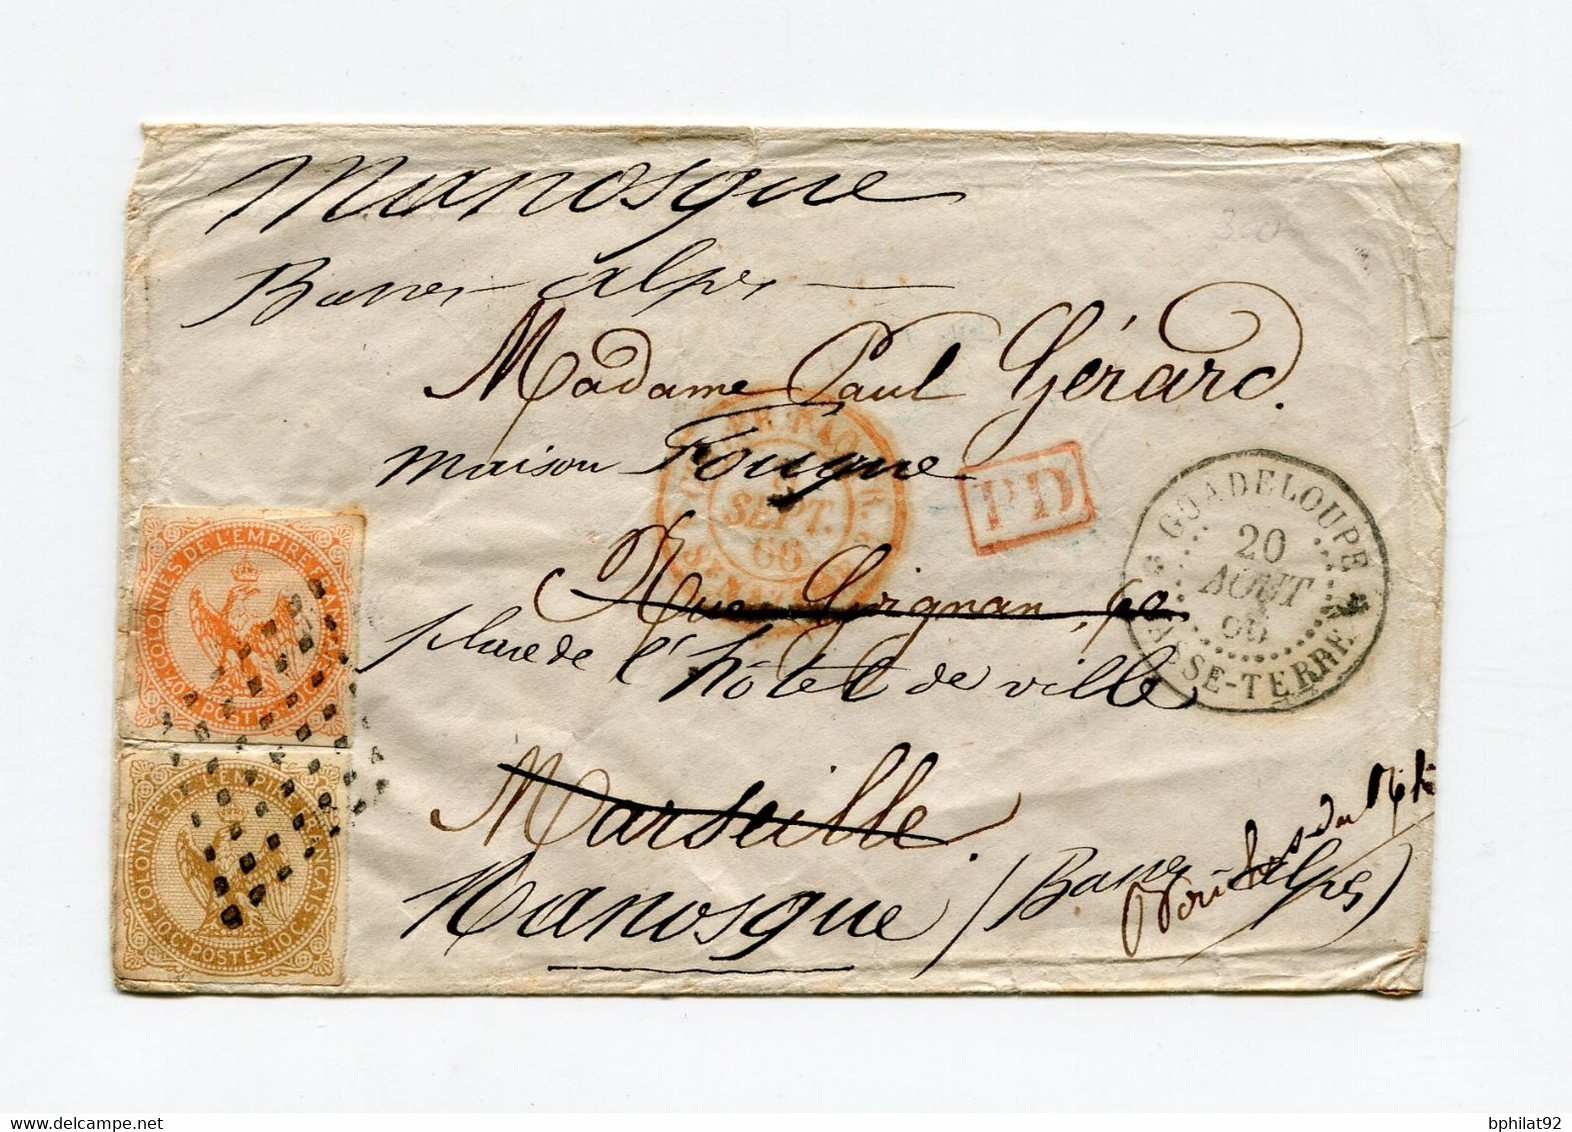 Manosque
Basses-alpes
300
Madame Paul Gérard.
maison Fouque
PD
SEPT.
66
GUADELOUPE
20
AOUT
66
BASSE-TERRE
Rue Grignan, 60
place de l'hôtel de ville
Marseille.
Bouches-du-Rh
Manosque / Basses-alpes)
COLONIES DE L'EMPIRE FRANÇAIS
40 C. POSTES 40 C.
COLONIES DE L'EMPIRE FRANÇAIS
10 C. POSTES 10 C.
delcampe.net
bphilat92